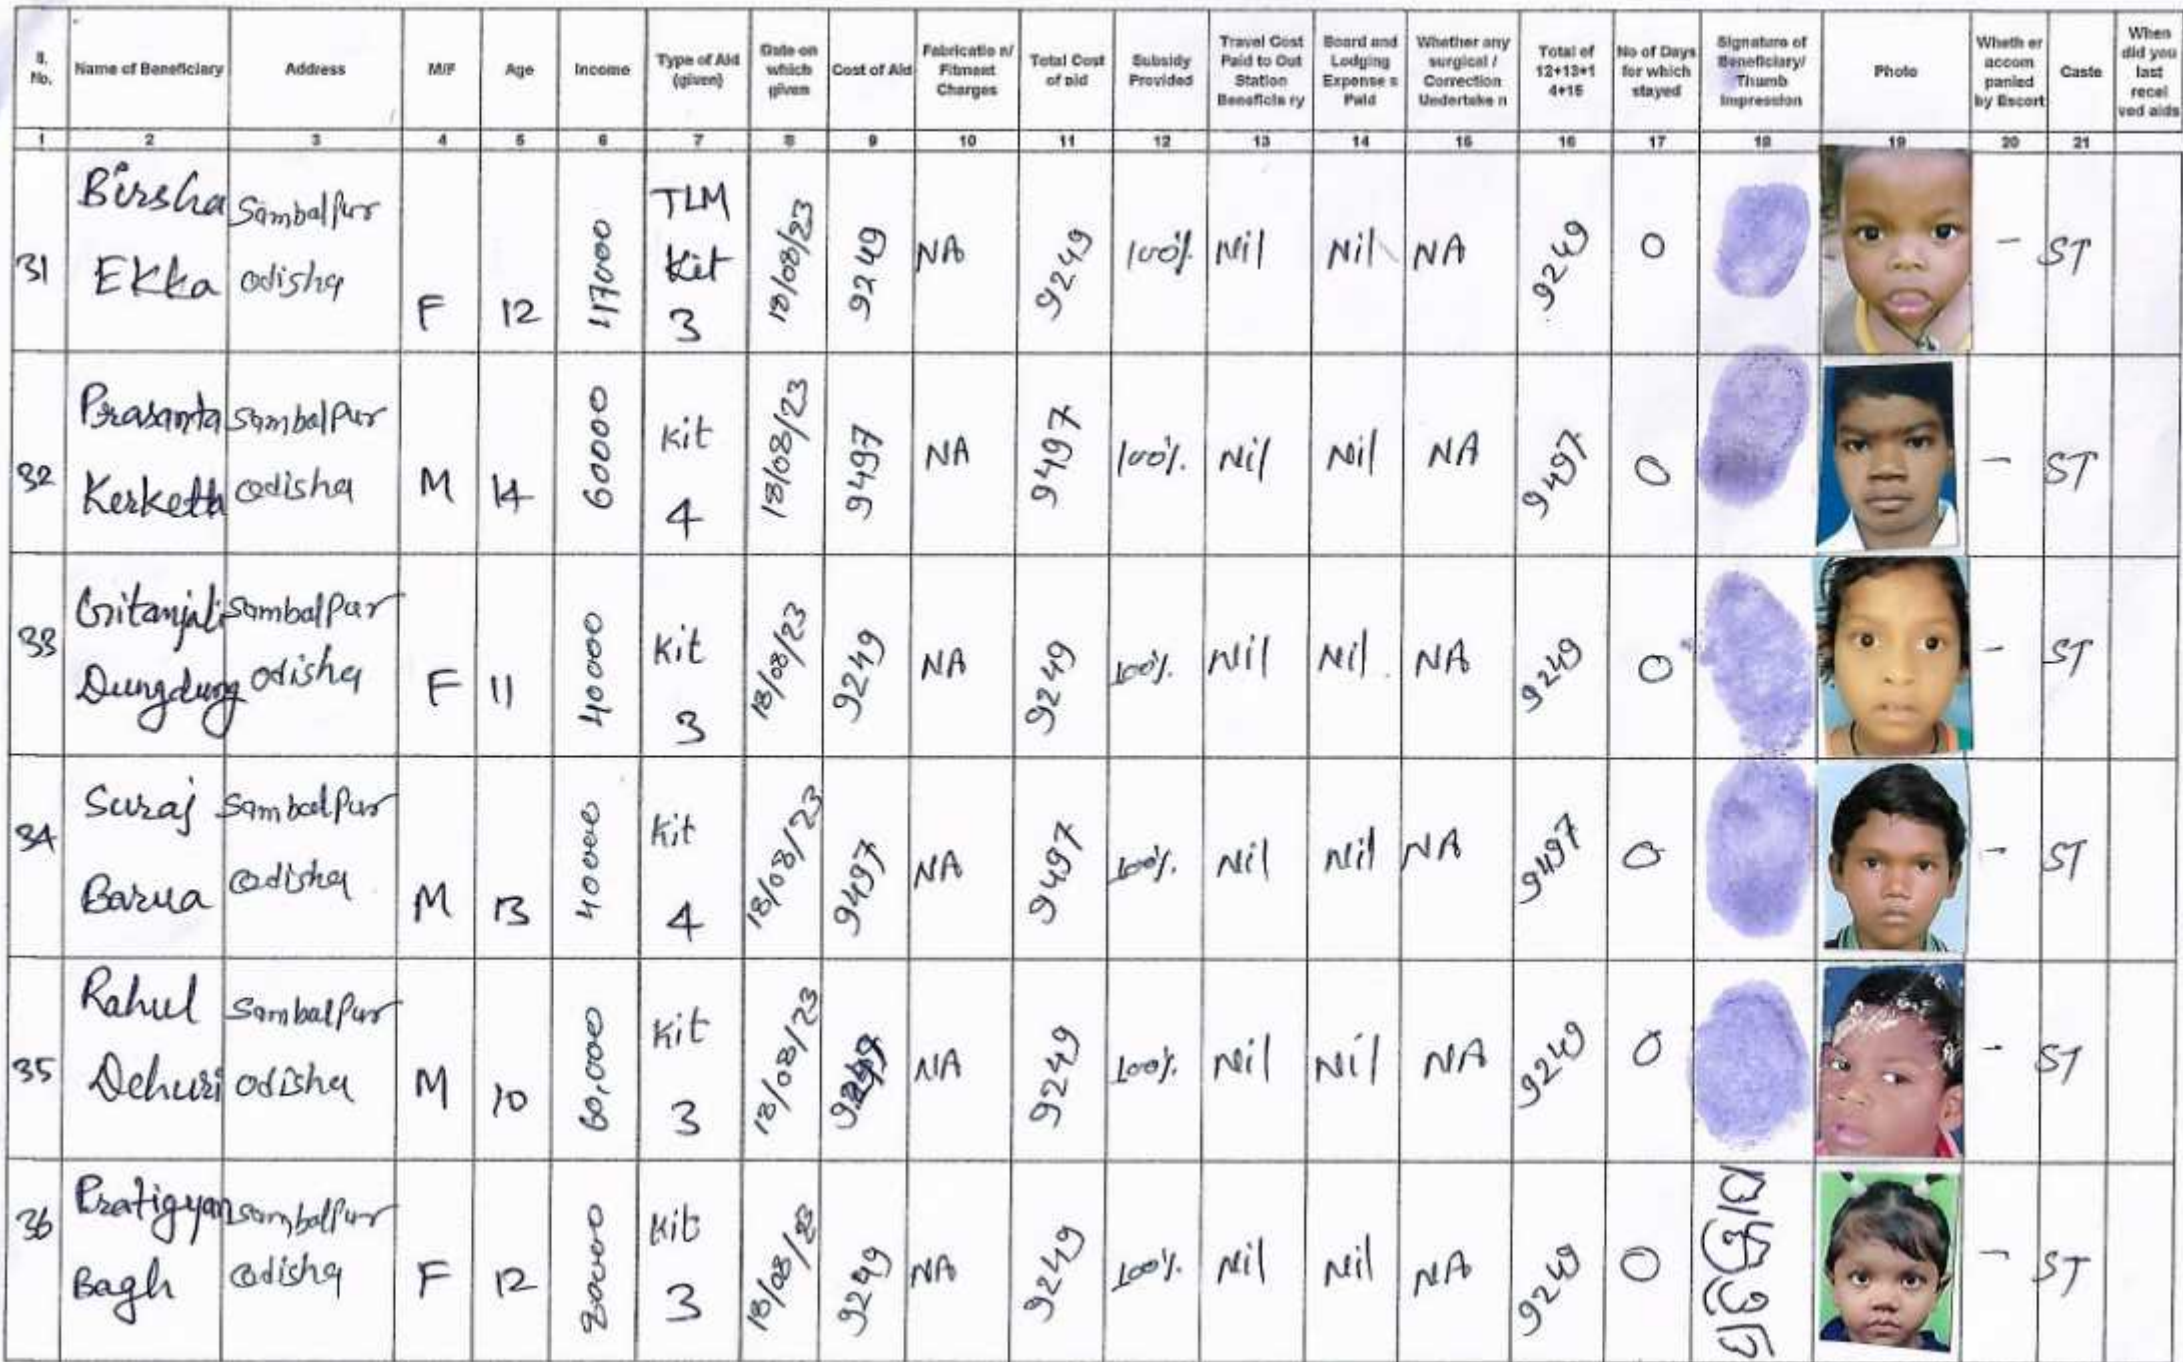 S. No. Name of Beneficiary Address M/F Age Income Type of Aid (given) Date on which given Cost of Aid Fabricatio n/ Fitment Charges Total Cost of aid Subsidy Provided Travel Cost Paid to Out Station Beneficia ry Board and Lodging Expense s Paid Whether any surgical / Correction Undertake n Total of 12+13+1 4+15 No of Days for which stayed Signature of Beneficiary/ Thumb Impression Photo Wheth er accom panied by Escort Caste When did you last recei ved aids
1 2 3 4 5 6 7 8 9 10 11 12 13 14 15 16 17 18 19 20 21
31 Birsha Ekka Sambalpur odisha F 12 47000 TLM Kit 3 18/08/23 9249 NA 9249 100% Nil Nil NA 9249 0 - ST
32 Prasanta Kerketta Sambalpur odisha M 14 60000 Kit 4 18/08/23 9497 NA 9497 100% Nil Nil NA 9497 0 - ST
33 Gitanjali Dungdung Sambalpur odisha F 11 40000 Kit 3 18/08/23 9249 NA 9249 100% Nil Nil NA 9249 0 - ST
34 Suraj Barua Sambalpur odisha M 13 40000 Kit 4 18/08/23 9497 NA 9497 100% Nil Nil NA 9497 0 - ST
35 Rahul Dehuri Sambalpur odisha M 10 60,000 Kit 3 18/08/23 NA 9249 100% Nil Nil NA 9249 0 - ST
36 Pratigyan Bagh Sambalpur odisha F 12 Kit 3 18/08/23 9249 NA 9249 100% Nil Nil NA 9249 0 - ST